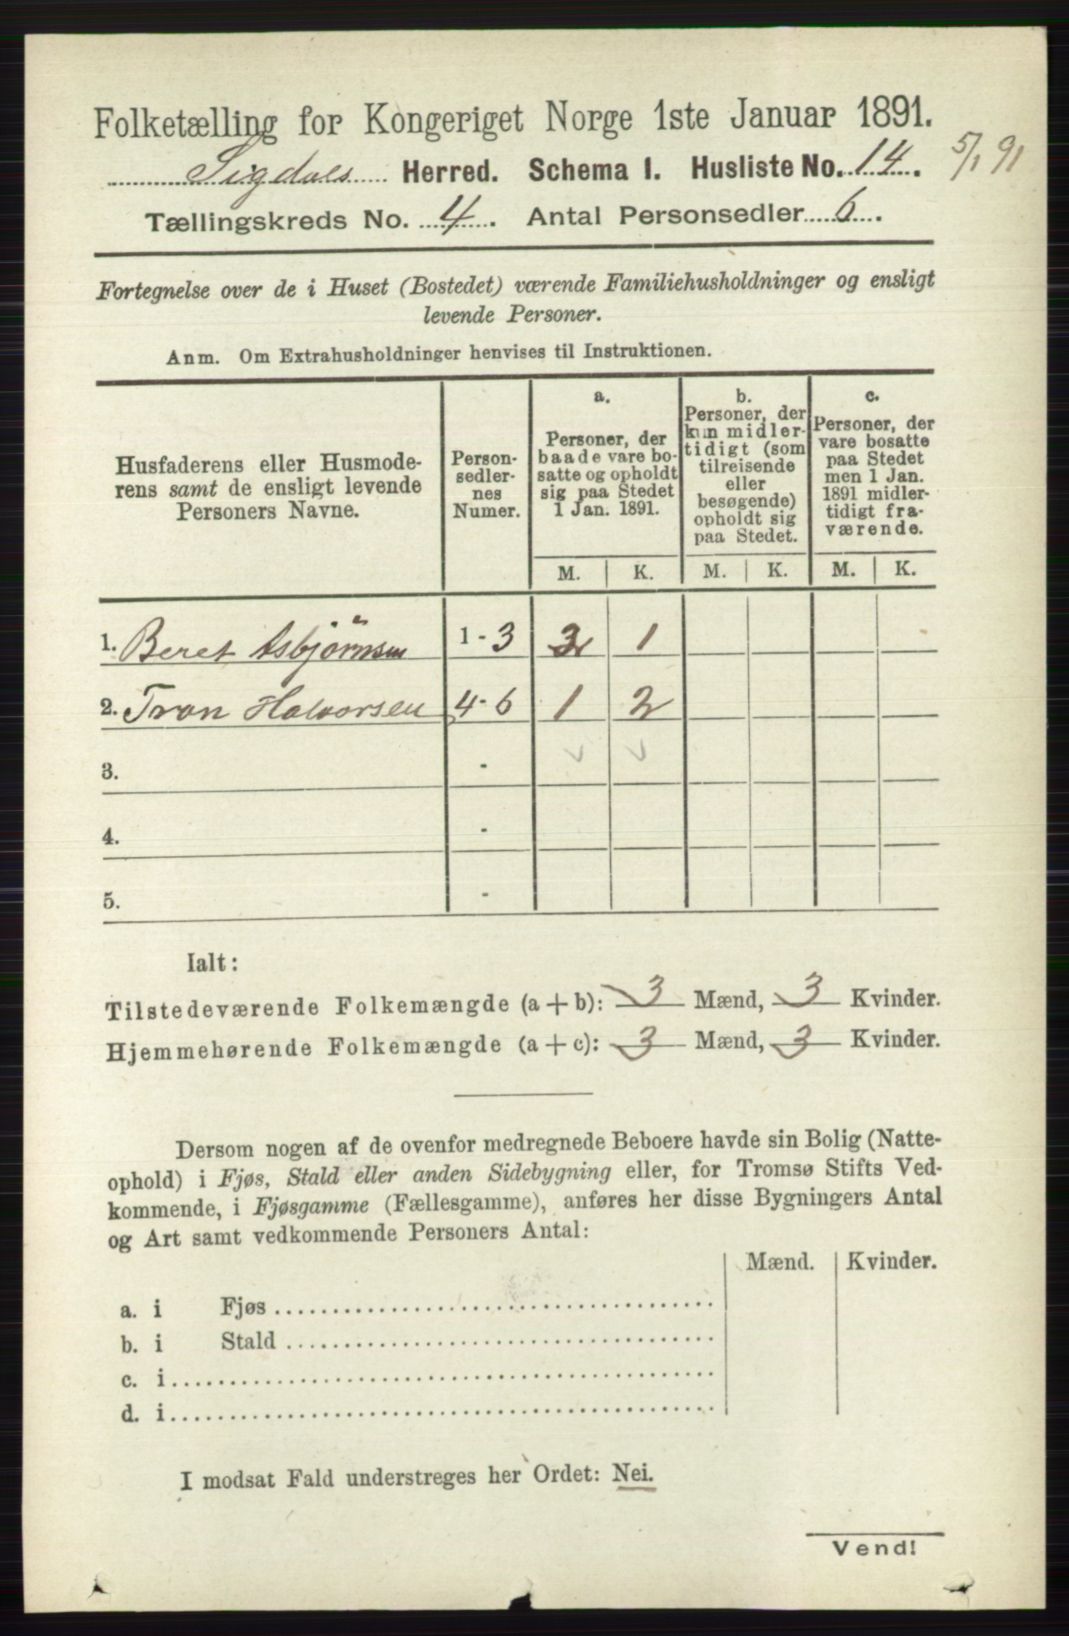 Folketælling for Kongeriget Norge 1ste Januar 1891.
Sigdals Herred. Schema I. Husliste No. 14. 5/1 91
Tællingskreds No. 4. Antal Personsedler 6.
Fortegnelse over de i Huset (Bostedet) værende Familiehusholdninger og ensligt
levende Personer.
Anm. Om Extrahusholdninger henvises til Instruktionen.
Husfaderens eller Husmode-
rens samt de ensligt levende
Personers Navne.
Person-
sedler-
nes
Numer.
a.
Personer, der
baade vare bo-
satte og opholdt
sig paa Stedet
1 Jan. 1891.
b.
Personer, der
kun midler-
tidigt (som
tilreisende
eller
besøgende)
opholdt sig
paa Stedet.
c.
Personer, der
vare bosatte
paa Stedet
men 1 Jan.
1891 midler-
tidigt fra-
værende.
M. K. M. K. M. K.
1. Beret Asbjørnsen 1 - 3 2 1
2. Tron Halvorsen 4 - 6 1 2
3. -
4. -
5. -
Ialt:
Tilstedeværende Folkemængde (a + b): 3 Mænd, 3 Kvinder.
Hjemmehørende Folkemængde (a + c): 3 Mænd, 3 Kvinder.
Dersom nogen af de ovenfor medregnede Beboere havde sin Bolig (Natte-
ophold) i Fjøs, Stald eller anden Sidebygning eller, for Tromsø Stifts Ved-
kommende, i Fjøsgamme (Fællesgamme), anføres her disse Bygningers Antal
og Art samt vedkommende Personers Antal:
Mænd. Kvinder.
a. i Fjøs
b. i Stald
c. i
d. i
I modsat Fald understreges her Ordet: Nei.
Vend!